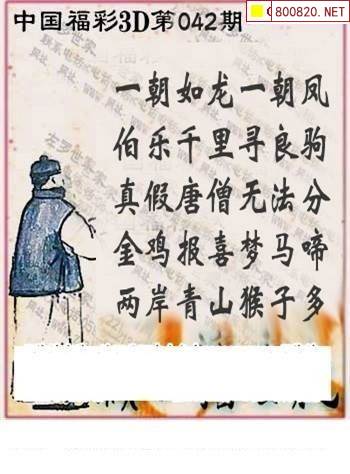 中国福彩3D第042期
800820.NET
一朝如龙一朝凤
伯乐千里寻良驹
真假唐僧无法分
金鸡报喜梦马啼
两岸青山猴子多